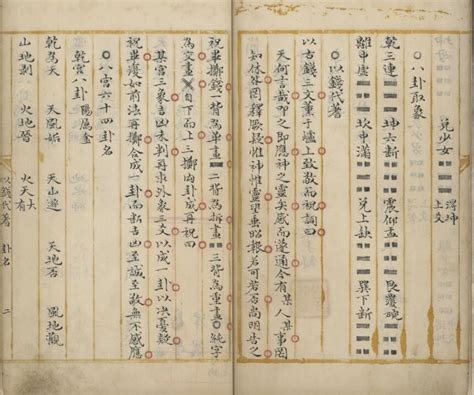 兌少女 得坤上爻
○八卦取象
乾三連 坤六斷 震仰盂 艮覆碗
離中虛 坎中滿 兌上缺 巽下斷
○以錢代蓍
以古錢三文薰于爐上致敬而祝詞曰
天何言哉叩之即應神之靈矣感而遂通今有某人某事罔
知休咎罔釋厥疑惟神惟靈望垂昭報若可若否尚明告之
祝畢擲錢一背為單畫 二背為拆畫 三背為重畫○純字
為交畫✕自下而上三擲內卦成再祝曰
某宮三象吉凶未判再求外象三爻以成一卦以決憂疑
祝畢復如前法再擲合成一卦而斷吉凶至誠至敬無不感應
○八宮六十四卦名
乾宮八卦 陽屬金
乾為天 天風姤 天山遯 天地否 風地觀
山地剝 火地晉 火天大有
以錢代蓍 卦名 二